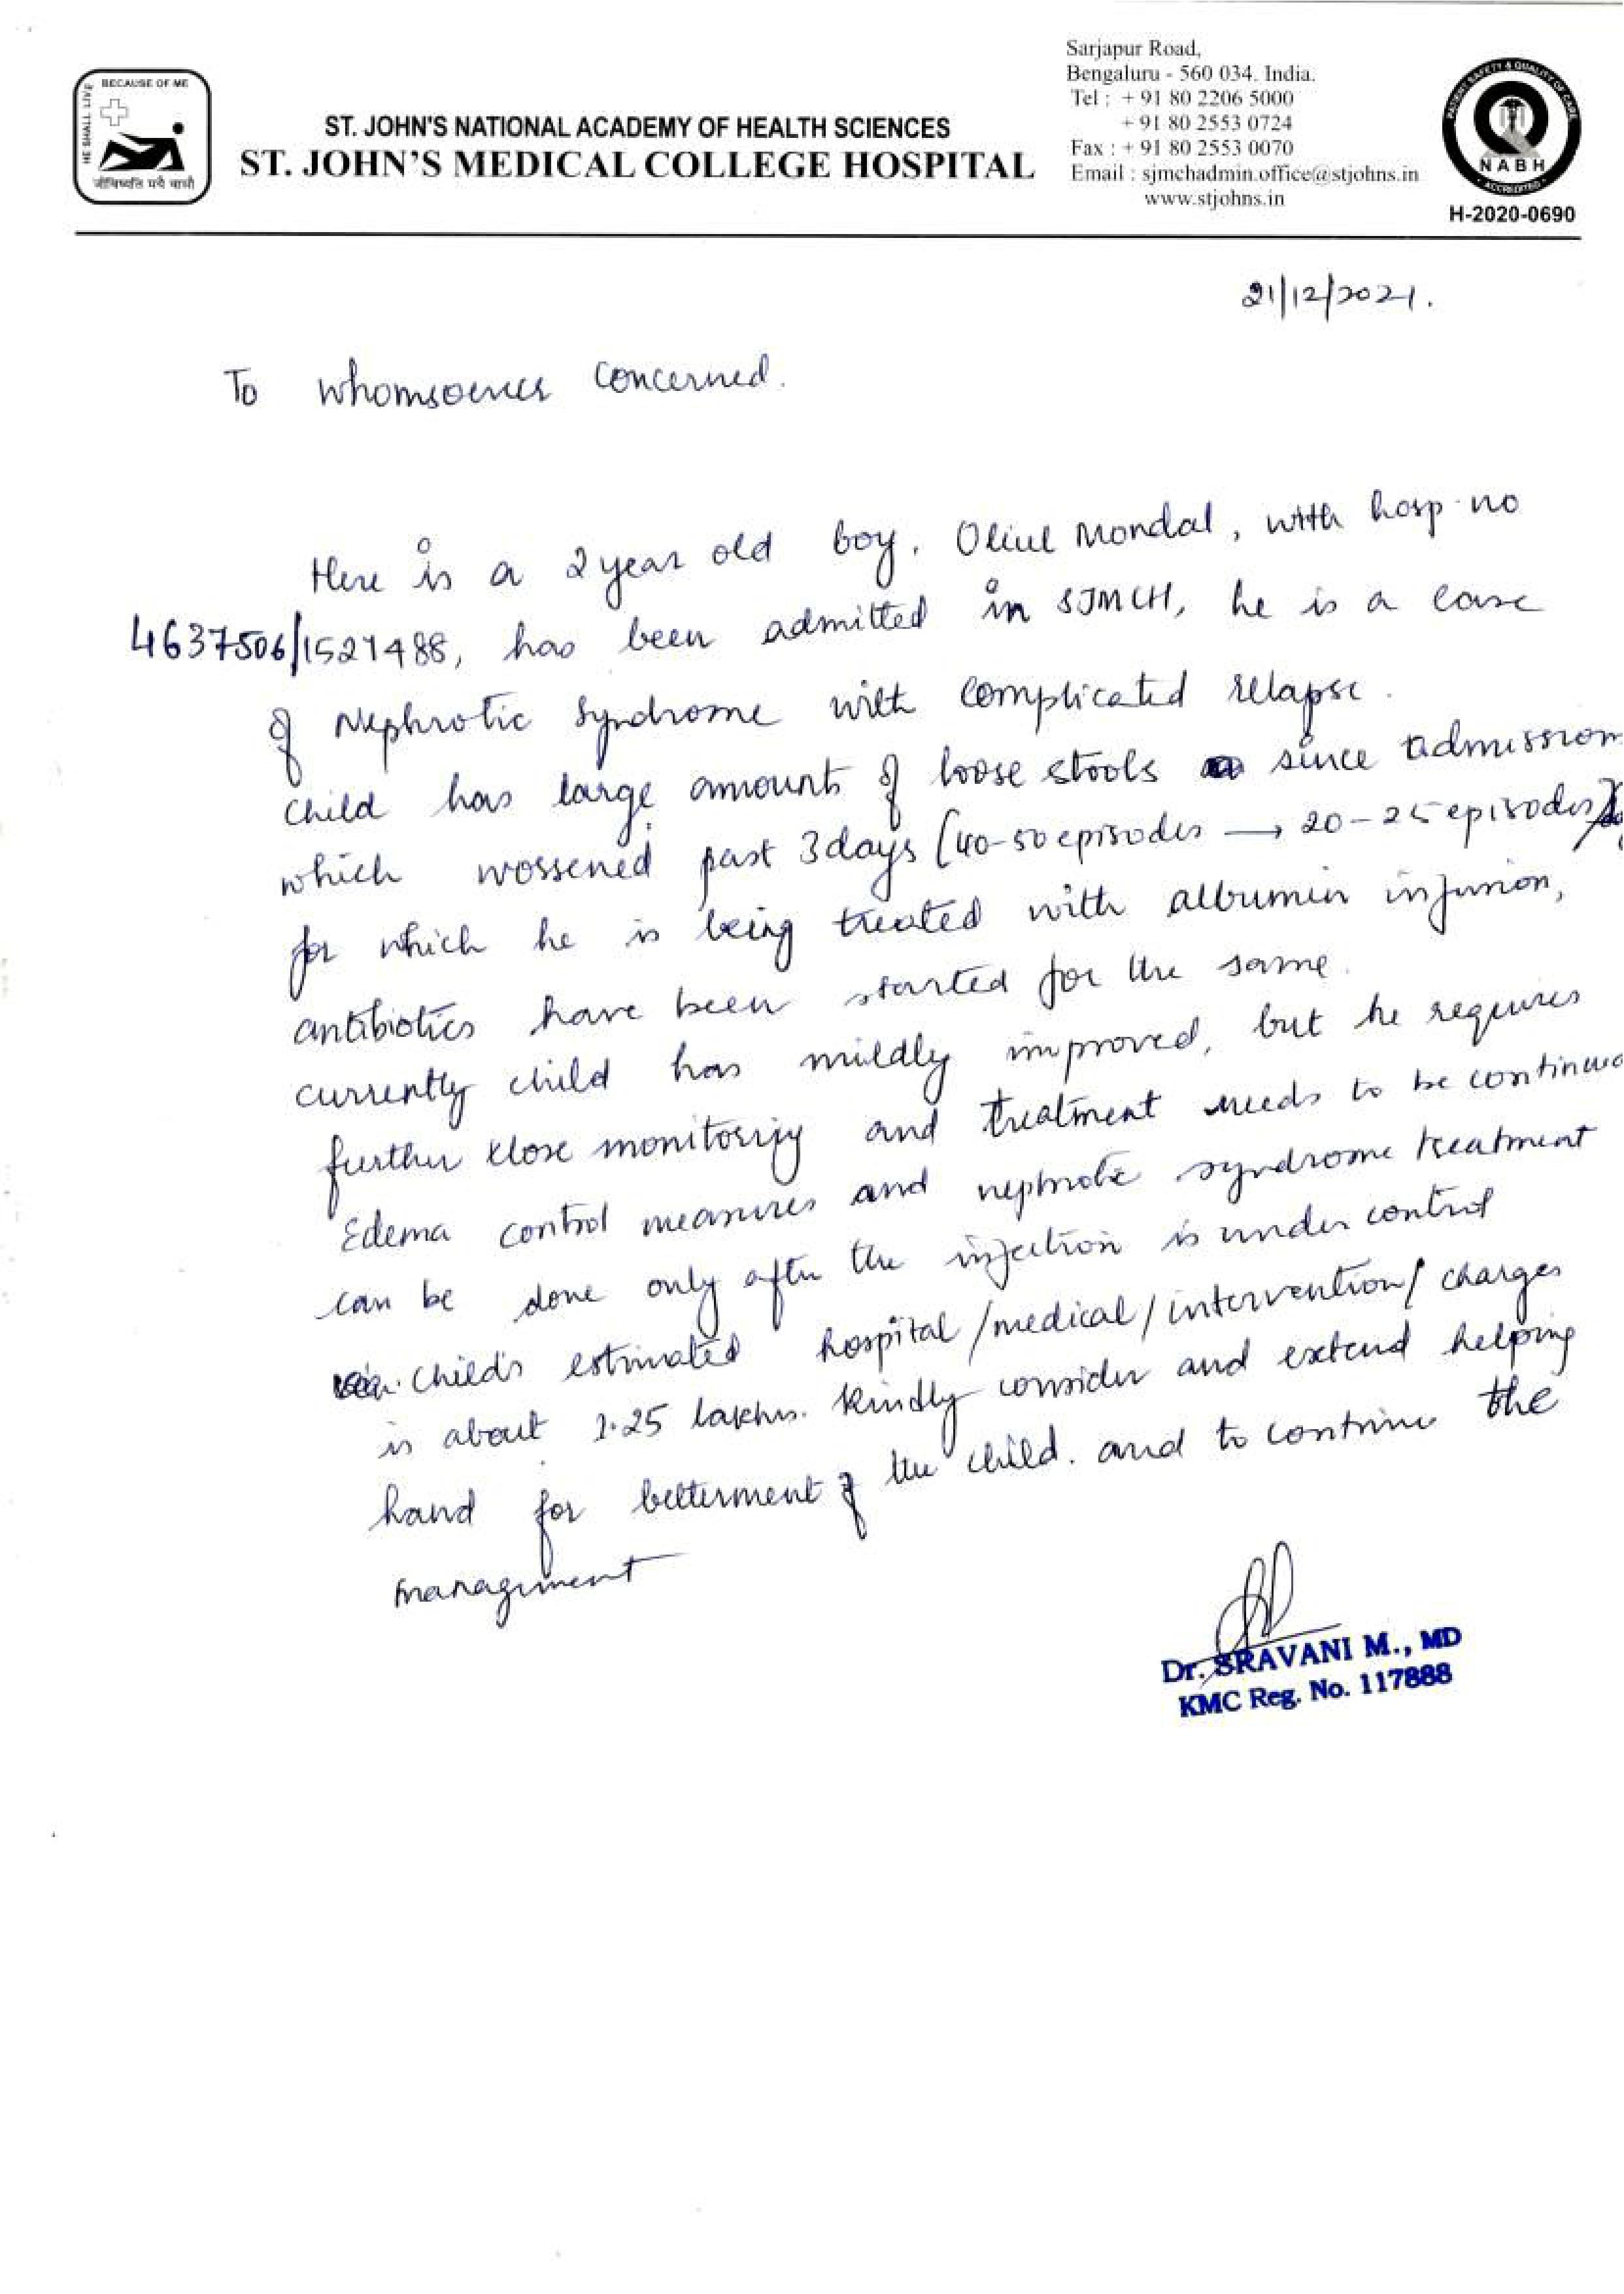 BECAUSE OF ME
HE SHALL LIVE
ST. JOHN'S NATIONAL ACADEMY OF HEALTH SCIENCES
ST. JOHN'S MEDICAL COLLEGE HOSPITAL
Sarjapur Road,
Bengaluru - 560 034. India.
Tel : + 91 80 2206 5000
+ 91 80 2553 0724
Fax : + 91 80 2553 0070
Email : sjmchadmin.office@stjohns.in
www.stjohns.in
PATIENT SAFETY & QUALITY OF CARE
NABH
ACCREDITED
H-2020-0690
21/12/2021.
To whomsoever concerned.
Here is a 2 year old boy, Mondal, with hosp. no
4637506/1521488, has been admitted in SJMCH, he is a case
of Nephrotic Syndrome with complicated relapse.
Child has large amounts of loose stools since admission
which wossened past 3 days [40-50 episodes → 20-25 episodes]
for which he is being treated with albumin infusion,
antibiotics have been started for the same.
currently child has mildly improved, but he requires
further close monitoring and treatment needs to be continued
Edema control measures and nephrotic syndrome treatment
can be done only after the infection is under control
Child's estimated hospital/medical/intervention/ charges
is about lakhs. Kindly consider and extend helping
hand for betterment of the child. and to continue the
management
Dr. SRAVANI M., MD
KMC Reg. No. 117888